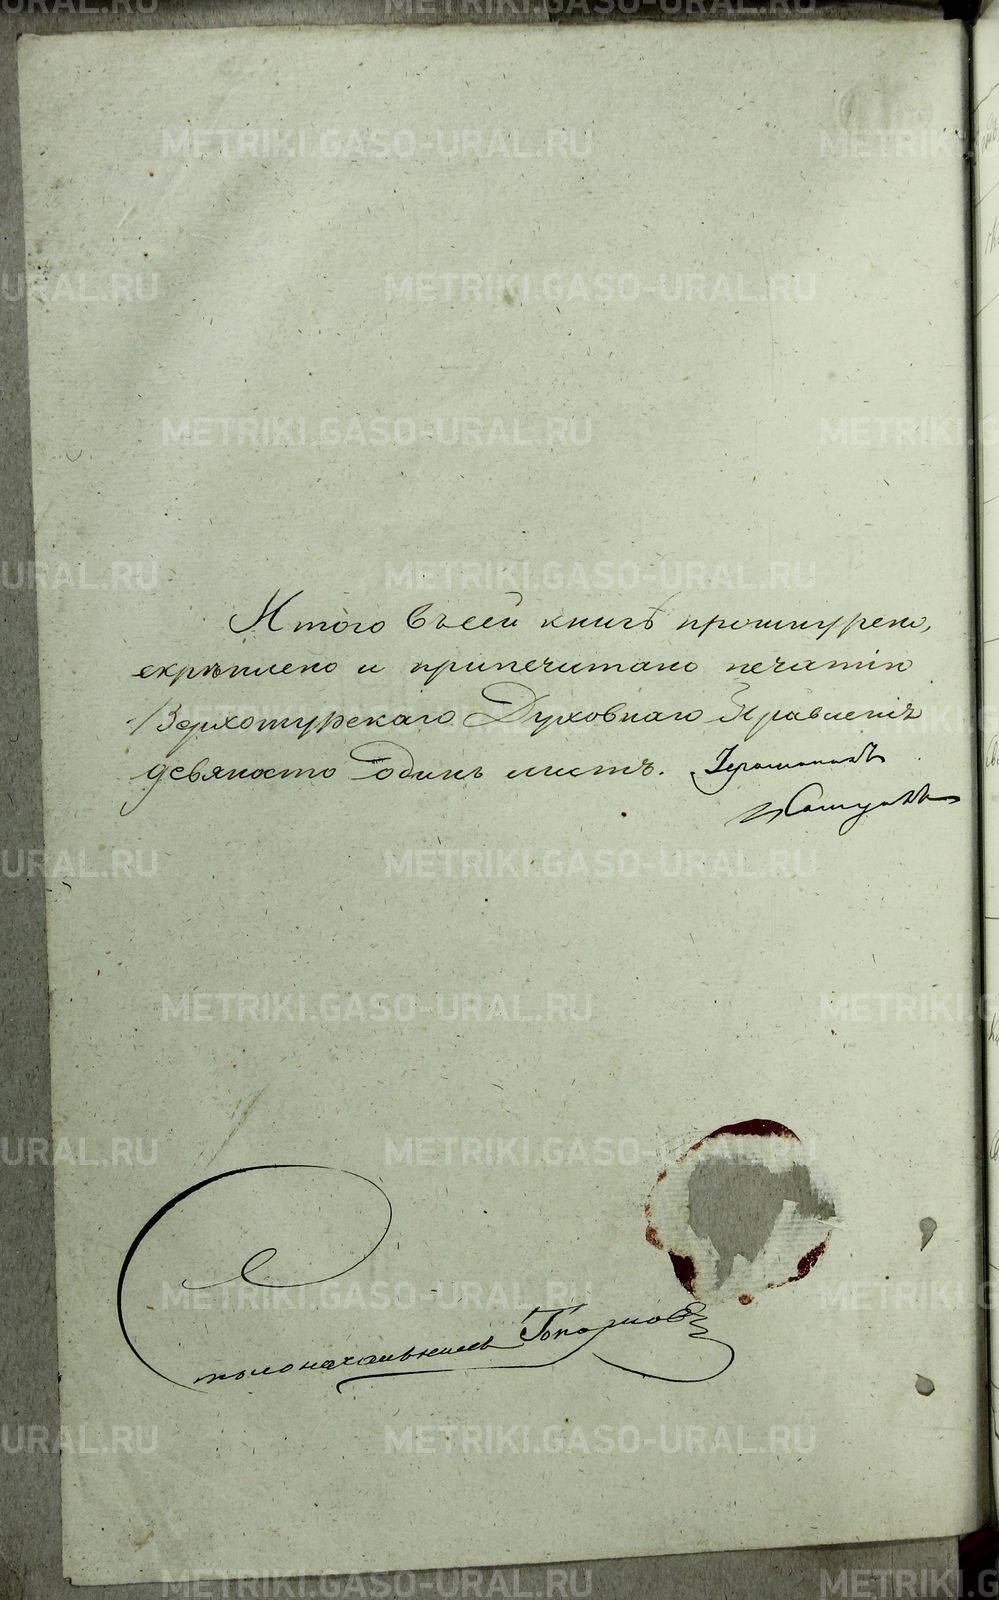 Итого въ сей книгѣ прошнурено,
скрѣплено и припечатано печатію
Верхотурскаго Духовнаго Правленія
девяносто одинъ листъ. Іеромонахъ
Столоначальникъ Топорковъ
METRIKI.GASO-URAL.RU